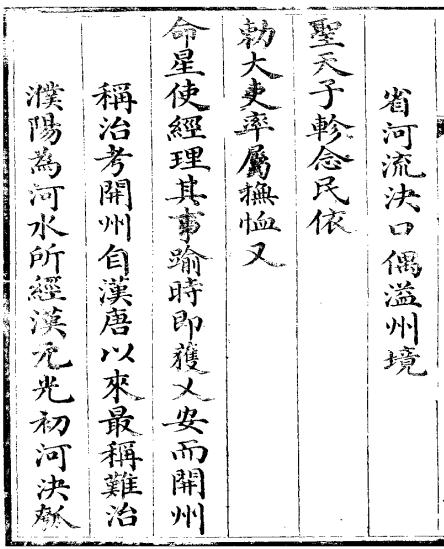 省河流決口偶溢州境
聖天子軫念民依
勅大吏率屬撫恤又
命星使經理其事踰時即獲乂安而開州
稱治考開州自漢唐以來最稱難治
濮陽為河水所經漢元光初河決瓠